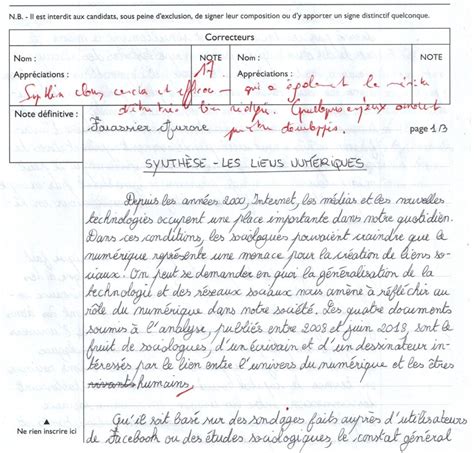 N.B. - Il est interdit aux candidats, sous peine d'exclusion, de signer leur composition ou d'y apporter un signe distinctif quelconque.
Correcteurs
Nom : NOTE Nom : NOTE
17
Appréciations : Appréciations :
Synthèse claire, concise et efficace – qui a également le mérite
d'être très bien rédigée. Quelques enjeux auraient
Note définitive : Aurore page 1/3
pu être développés.
SYNTHÈSE - LES LIENS NUMÉRIQUES
Depuis les années 2000, Internet, les médias et les nouvelles
technologies occupent une place importante dans notre quotidien.
Dans ces conditions, les sociologues pouvaient craindre que le
numérique représente une menace pour la création de liens so-
ciaux. On peut se demander en quoi la généralisation de la
technologie et des réseaux sociaux nous amène à réfléchir au
rôle du numérique dans notre société. Les quatre documents
soumis à l'analyse, publiés entre 2008 et juin 2018, sont le
fruit de sociologues, d'un écrivain et d'un dessinateur in-
téressés par le lien entre l'univers du numérique et les êtres
vivants humains.
Qu'il soit basé sur des sondages faits auprès d'utilisateurs
Ne rien inscrire ici de Facebook ou des études sociologiques, le constat général